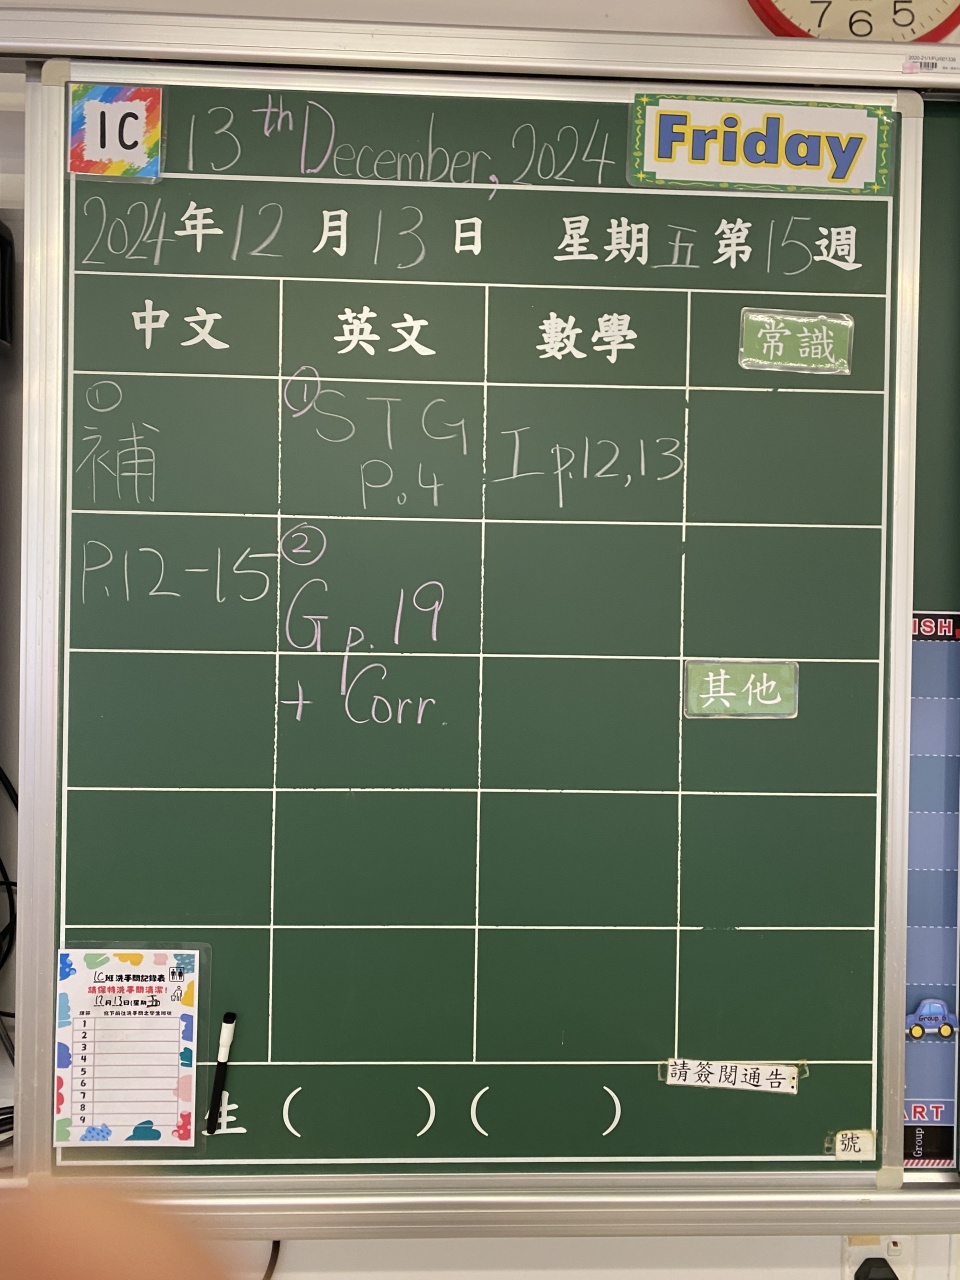 7 6 5
1C 13th December, 2024 Friday
2024年12月13日 星期五第15週
中文 英文 數學 常識
① 補
P.12-15
① STG
P.4
② G p.19
+ Corr.
I p.12,13
其他
1C班洗手間記錄表
請保持洗手間清潔!
12月13日(星期五)
1
2
3
4
5
6
7
8
9
生 ( ) ( )
請簽閱通告:
號
ISH
Group 8
ART
Group